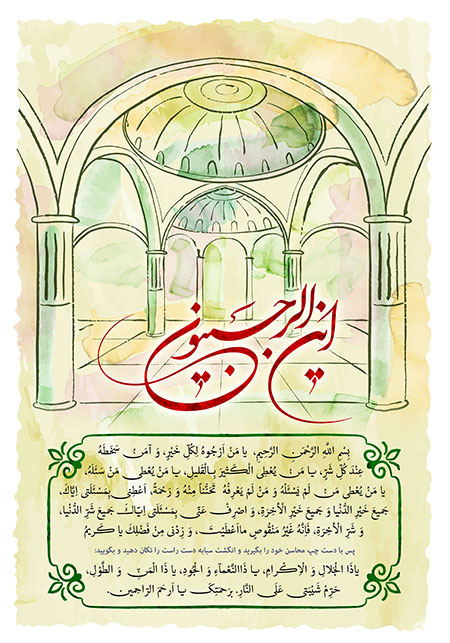 این الرجبیون
بِسْمِ اللَّهِ الرَّحْمَنِ الرَّحِيمِ، يا مَنْ أَرْجُوهُ لِكُلِّ خَيْرٍ، وَ آمَنُ سَخَطَهُ
عِنْدَ كُلِّ شَرٍّ، يا مَنْ يُعْطِى الْكَثيرَ بِالْقَليلِ، يا مَنْ يُعْطى مَنْ سَئَلَهُ،
يا مَنْ يُعْطى مَنْ لَمْ يَسْئَلْهُ وَ مَنْ لَمْ يَعْرِفْهُ تَحَنُّناً مِنْهُ وَ رَحْمَةً، اَعْطِنى بِمَسْئَلَتى اِيَّاكَ،
جَميعَ خَيْرِ الدُّنْيا وَ جَميعَ خَيْرِ الْآخِرَةِ، وَ اصْرِفْ عَنّى بِمَسْئَلَتى اِيّاكَ جَميعَ شَرِّ الدُّنْيا،
وَ شَرِّ الْآخِرَةِ، فَاِنَّهُ غَيْرُ مَنْقُوصٍ ما اَعْطَيْتَ، وَ زِدْنى مِنْ فَضْلِكَ يا كَريمُ
پس با دست چپ محاسن خود را بگیرید و انگشت سبابه دست راست را تکان دهید و بگویید:
ياذَا الْجَلالِ وَ الْاِكْرامِ، يا ذَاالنَّعْماءِ وَ الْجُودِ، يا ذَا الْمَنِّ وَ الطَّوْلِ،
حَرِّمْ شَيْبَتى عَلَى النَّارِ. بِرَحمَتِكَ يا اَرحَمَ الرّاحِمين.